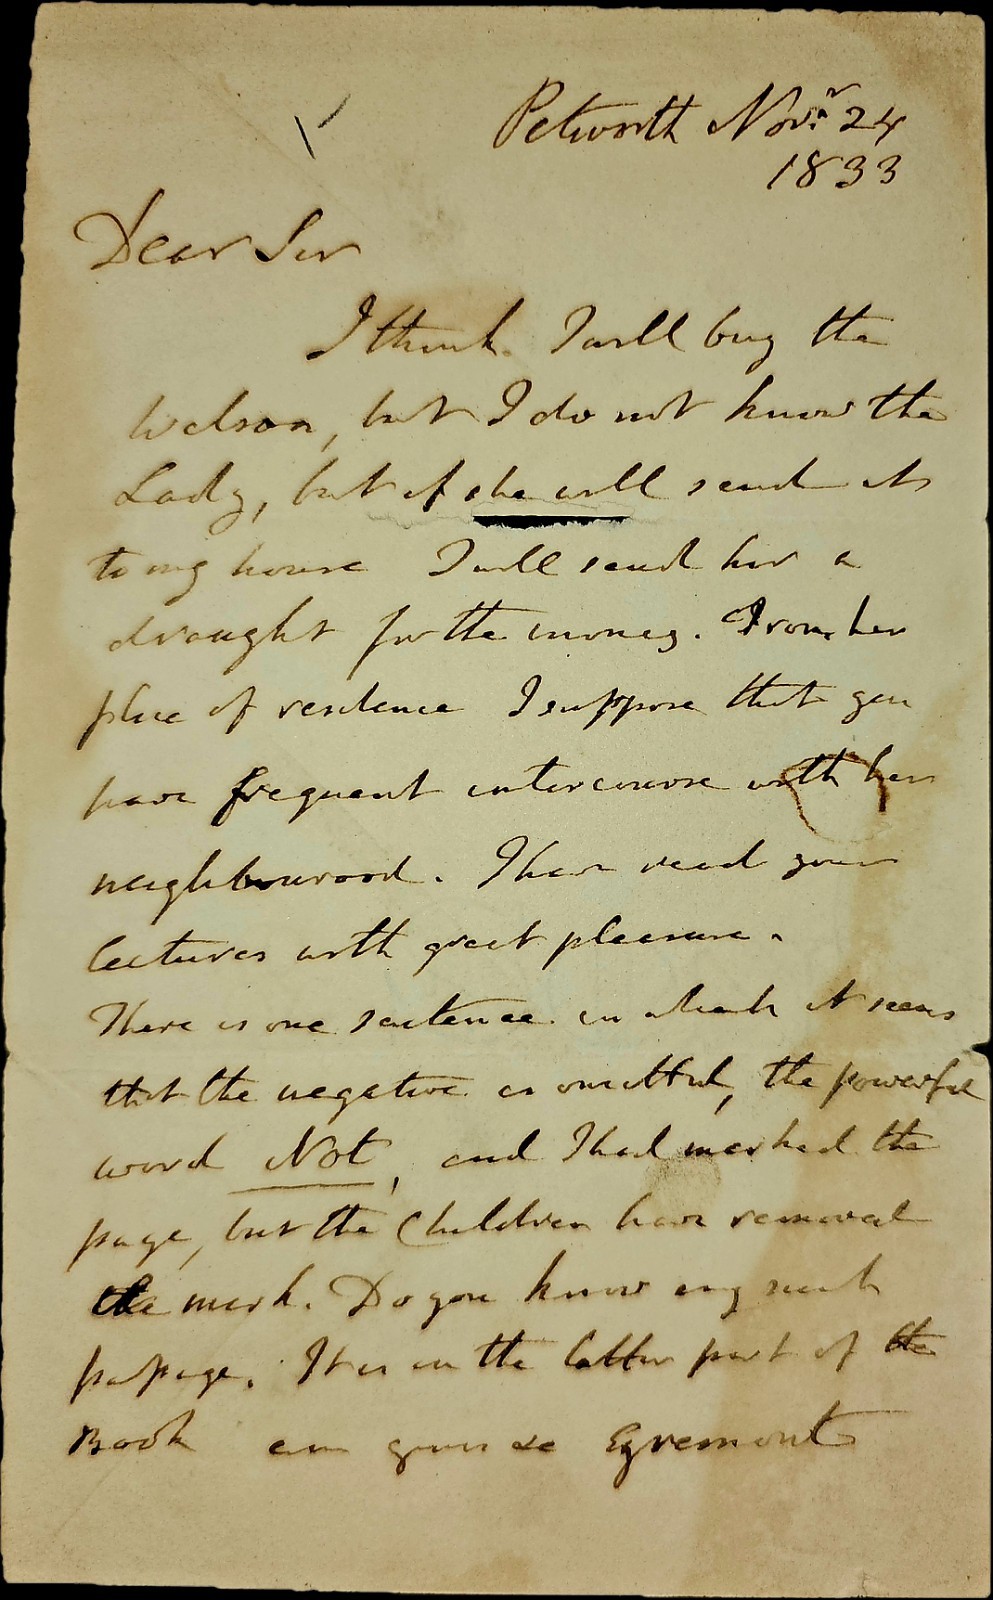 Petworth Novr. 24
1833
Dear Sir
I think I will buy the
Wilson, but I do not know the
Lady, but if she will send it
to my house I will send her a
draught for the money. From her
place of residence I suppose that you
have frequent intercourse with her
neighbourood. I have read your
lectures with great pleasure.
There is one sentence in which it seems
that the negative is omitted, the powerful
word Not, and I had marked the
page, but the Children have removed
the mark. Do you know any such
passage. It is in the latter part of the
Book am yours &c Egremont